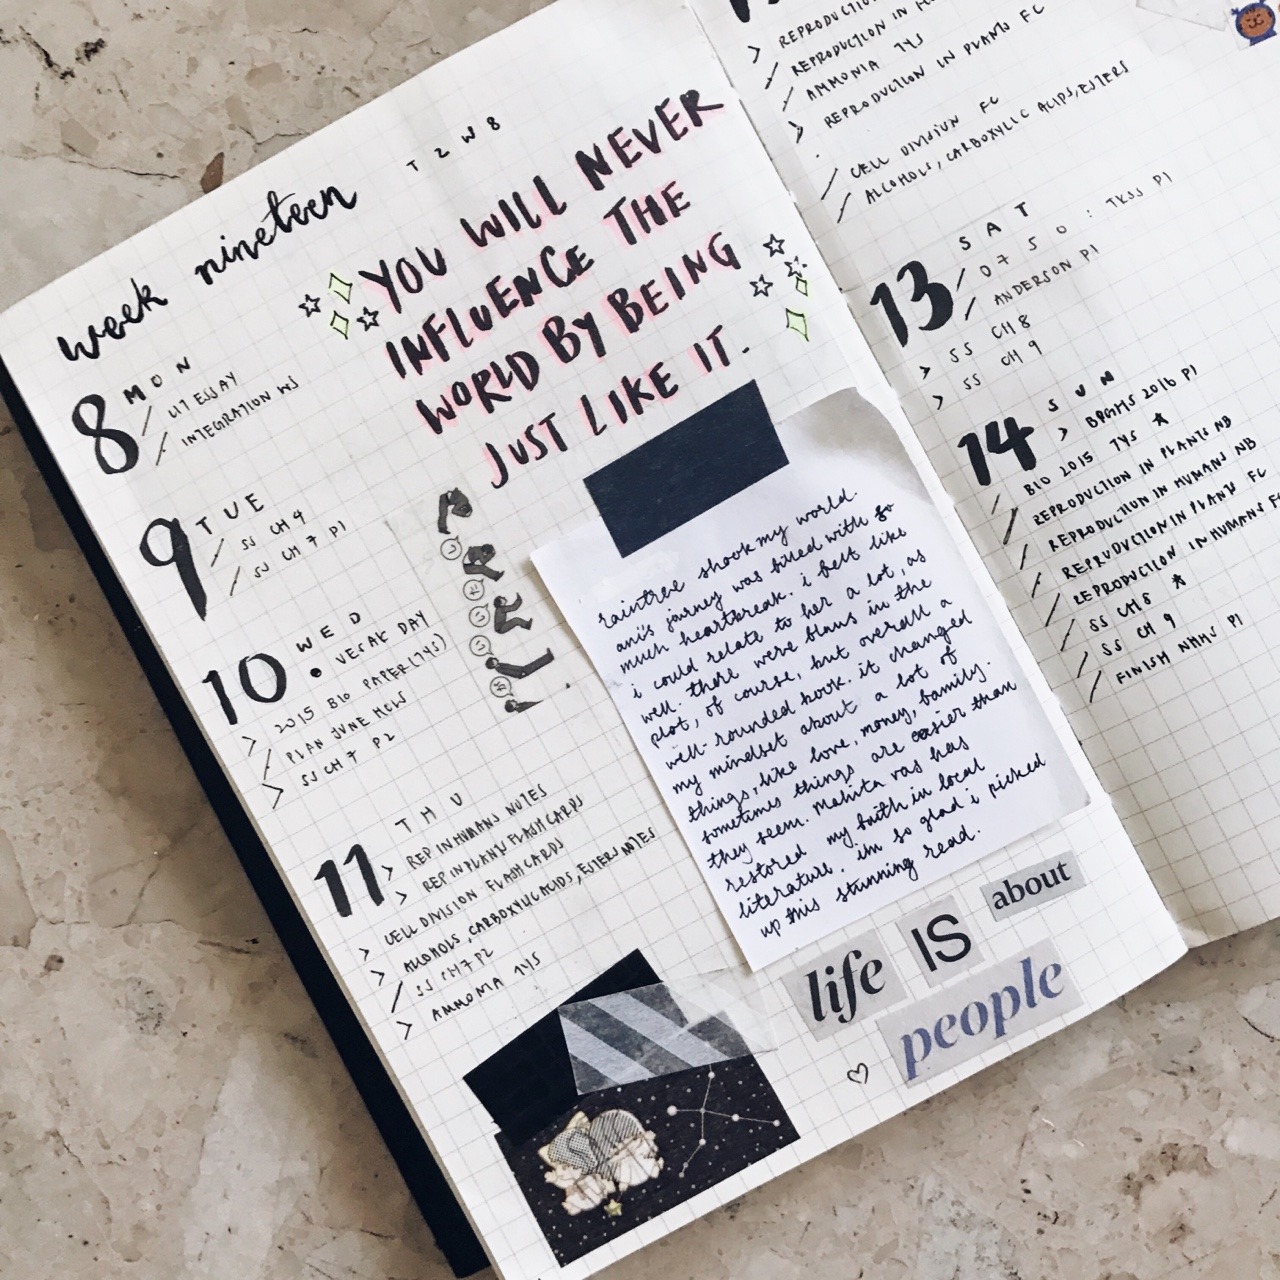 week nineteen
T2W8
YOU WILL NEVER
INFLUENCE THE
WORLD BY BEING
JUST LIKE IT.
8 MON
/ UT ESSAY
/ INTEGRATION WS
9 TUE
/ SS CH 9
/ SS CH 7 P1
10 WED
• VESAK DAY
> 2015 BIO PAPER (TYS)
/ PLAN JUNE HOLS
> SS CH 7 P2
11 THU
> REP IN HUMANS NOTES
> REP IN PLANTS FLASHCARDS
> CELL DIVISION FLASHCARDS
> ALCOHOLS, CARBOXYLIC ACIDS, ESTERS NOTES
/ SS CH 7 P2
> AMMONIA TYS
raintree shook my world.
ani's journey was filled with so
much heartbreak. i felt like
i could relate to her a lot, as
well. there were flaws in the
plot, of course, but overall a
well-rounded book. it changed
my mindset about a lot of
things, like love, money, family.
sometimes things are easier than
they seem. Mahita vas has
restored my faith in local
literature. im so glad i picked
up this stunning read.
life IS about
people
> REPRODUCTION
/ REPRODUCTION IN
/ AMMONIA TYS
> REPRODUCTION IN PLANTS FC
/ CELL DIVISION FC
/ ALCOHOLS, CARBOXYLIC ACIDS, ESTERS
13 SAT
/ 0750: TKSS P1
/ ANDERSON P1
> SS CH 8
> SS CH 9
14 SUN
> BPGHS 2016 P1
/ BIO 2015 TYS ★
/ REPRODUCTION IN PLANTS NB
/ REPRODUCTION IN HUMANS NB
/ REPRODUCTION IN PLANTS FC
/ REPRODUCTION IN HUMANS FC
/ SS CH 8 ★
/ SS CH 9
/ FINISH NHHS P1